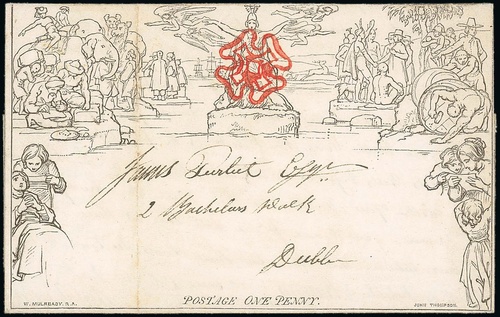 James Turbet Esqr
2 Bachelors Walk
Dublin
POSTAGE ONE PENNY.
W. MULREADY. R.A.
JOHN THOMPSON.